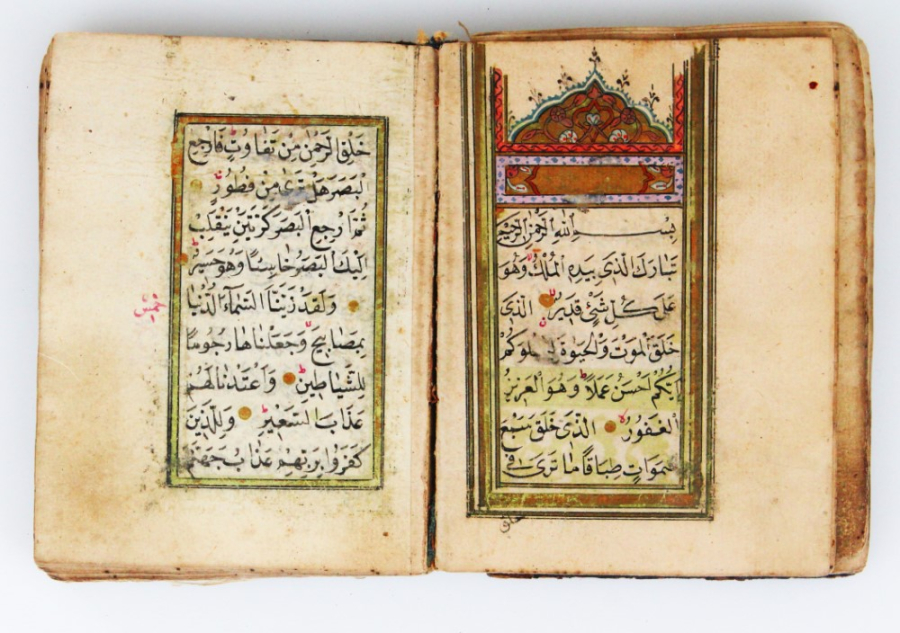 بِسْمِ اللهِ الرَّحْمٰنِ الرَّحِيمِ
تَبَارَكَ الَّذِي بِيَدِهِ الْمُلْكُ وَهُوَ
عَلَى كُلِّ شَيْءٍ قَدِيرٌ الَّذِي
خَلَقَ الْمَوْتَ وَالْحَيٰوةَ لِيَبْلُوَكُمْ
اَيُّكُمْ اَحْسَنُ عَمَلًا وَهُوَ الْعَزِيزُ
الْغَفُورُ الَّذِي خَلَقَ سَبْعَ
سَمٰوَاتٍ طِبَاقًا مَا تَرَى فِي
خلق
خَلْقِ الرَّحْمٰنِ مِنْ تَفَاوُتٍ فَارْجِعِ
الْبَصَرَ هَلْ تَرَى مِنْ فُطُورٍ
ثُمَّ ارْجِعِ الْبَصَرَ كَرَّتَيْنِ يَنْقَلِبْ
اِلَيْكَ الْبَصَرُ خَاسِئًا وَهُوَ حَسِيرٌ
وَلَقَدْ زَيَّنَّا السَّمَاءَ الدُّنْيَا
خمس
بِمَصَابِيحَ وَجَعَلْنَاهَا رُجُومًا
لِلشَّيَاطِينِ وَاَعْتَدْنَا لَهُمْ
عَذَابَ السَّعِيرِ وَلِلَّذِينَ
كَفَرُوا بِرَبِّهِمْ عَذَابُ جَهَنَّمَ